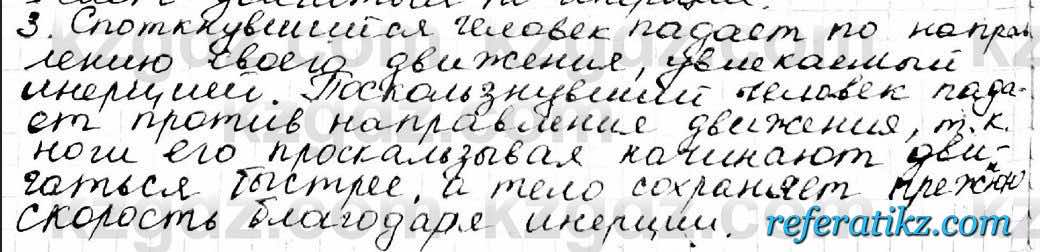 3. Споткнувшийся человек падает по направ
лению своего движения, увлекаемый
инерцией. Поскользнувший человек пада-
ет против направления движения, т.к.
ноги его проскальзывая начинают дви-
гаться быстрее, а тело сохраняет прежнюю
скорость благодаря инерции.
referatikz.com